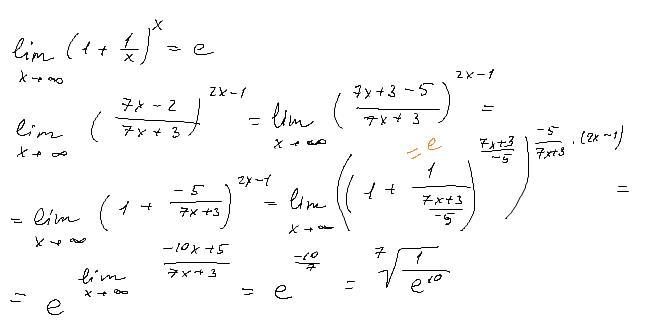 lim x→∞ (1 + 1/x)^x = e
lim x→∞ ((7x-2)/(7x+3))^(2x-1) = lim x→∞ ((7x+3-5)/(7x+3))^(2x-1) =
= e
= lim x→∞ (1 + (-5)/(7x+3))^(2x-1) = lim x→∞ ((1 + 1/((7x+3)/(-5)))^((7x+3)/(-5)))^((-5)/(7x+3) · (2x-1)) =
= e^(lim x→∞ (-10x+5)/(7x+3)) = e^(-10/7) = ⁷√(1/e^10)